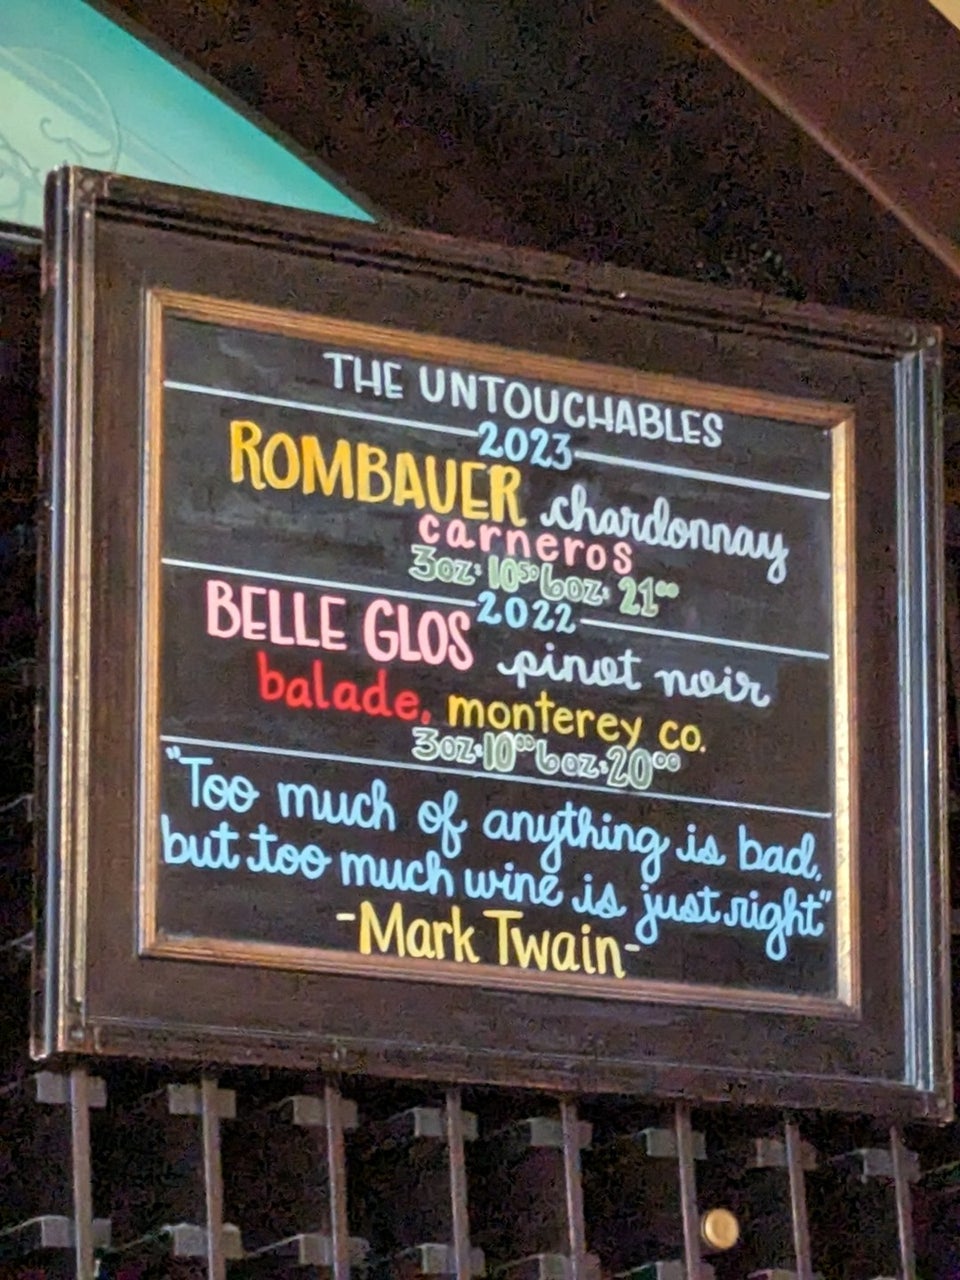 THE UNTOUCHABLES
2023
ROMBAUER chardonnay
carneros
3oz: 10⁵⁰ 6oz: 21⁰⁰
2022
BELLE GLOS pinot noir
balade, monterey co.
3oz: 10⁰⁰ 6oz: 20⁰⁰
"Too much of anything is bad,
but too much wine is just right"
-Mark Twain-